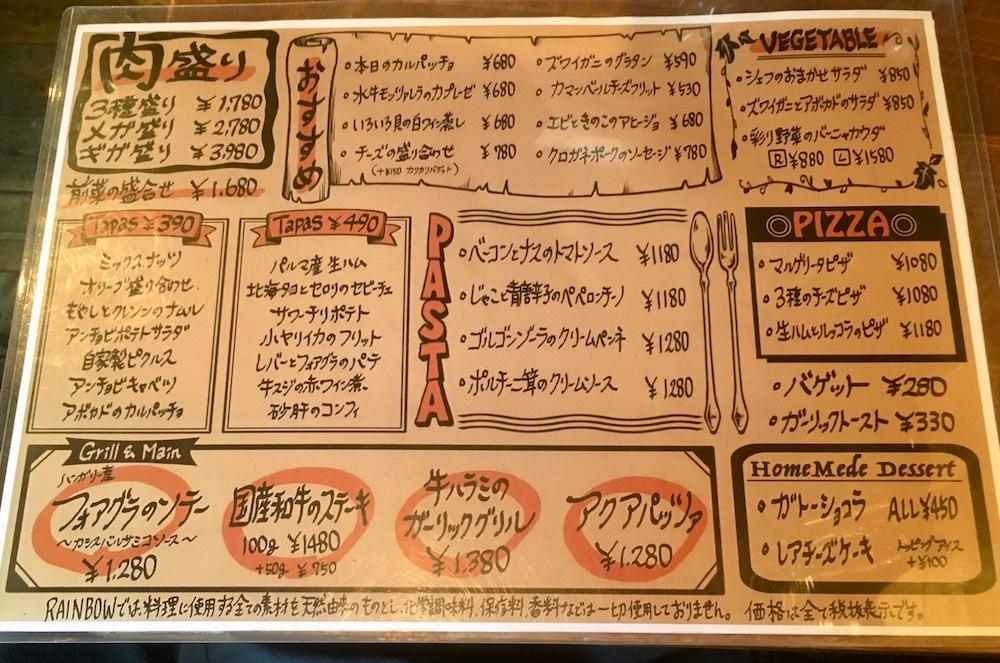 肉盛り
3種盛り ¥1,780
メガ盛り ¥2,780
ギガ盛り ¥3,980
前菜の盛合せ ¥1.680
おすすめ
・本日のカルパッチョ ¥680
・水牛モッツァレラのカプレーゼ ¥680
・いろいろ貝の白ワイン蒸し ¥680
・チーズの盛り合わせ ¥780
(+¥150 カリカリバゲット)
・ズワイガニのグラタン ¥590
・カマンベールチーズフリット ¥530
・エビときのこのアヒージョ ¥680
・クロガネポークのソーセージ ¥780
VEGETABLE
・シェフのおまかせサラダ ¥850
・ズワイガニとアボカドのサラダ ¥850
・彩り野菜のバーニャカウダ
R ¥880 L ¥1580
Tapas ¥390
ミックスナッツ
オリーブ盛り合わせ
もやしとクレソンのナムル
アンチョビポテトサラダ
自家製ピクルス
アンチョビキャベツ
アボカドのカルパッチョ
Tapas ¥490
パルマ産生ハム
北海タコとセロリのセビーチェ
サワーチリポテト
小ヤリイカのフリット
レバーとフォアグラのパテ
牛スジの赤ワイン煮
砂肝のコンフィ
PASTA
・ベーコンとナスのトマトソース ¥1180
・じゃこと青唐辛子のペペロンチーノ ¥1180
・ゴルゴンゾーラのクリームペンネ ¥1280
・ポルチーニ茸のクリームソース ¥1280
PIZZA
・マルゲリータピザ ¥1080
・3種のチーズピザ ¥1080
・生ハムとルッコラのピザ ¥1180
・バゲット ¥280
・ガーリックトースト ¥330
Grill & Main
ハンガリー産
フォアグラのソテー
〜カシスバルサミコソース〜
¥1.280
国産和牛のステーキ
100g ¥1480
+50g ¥750
牛ハラミの
ガーリックグリル
¥1.380
アクアパッツァ
¥1.280
HomeMede Dessert
・ガトーショコラ ALL¥450
・レアチーズケーキ トッピングアイス
+¥100
RAINBOWでは、料理に使用する全ての素材を天然由来のものとし、化学調味料、保存料、香料などは一切使用しておりません。 価格は全て税抜表示です。